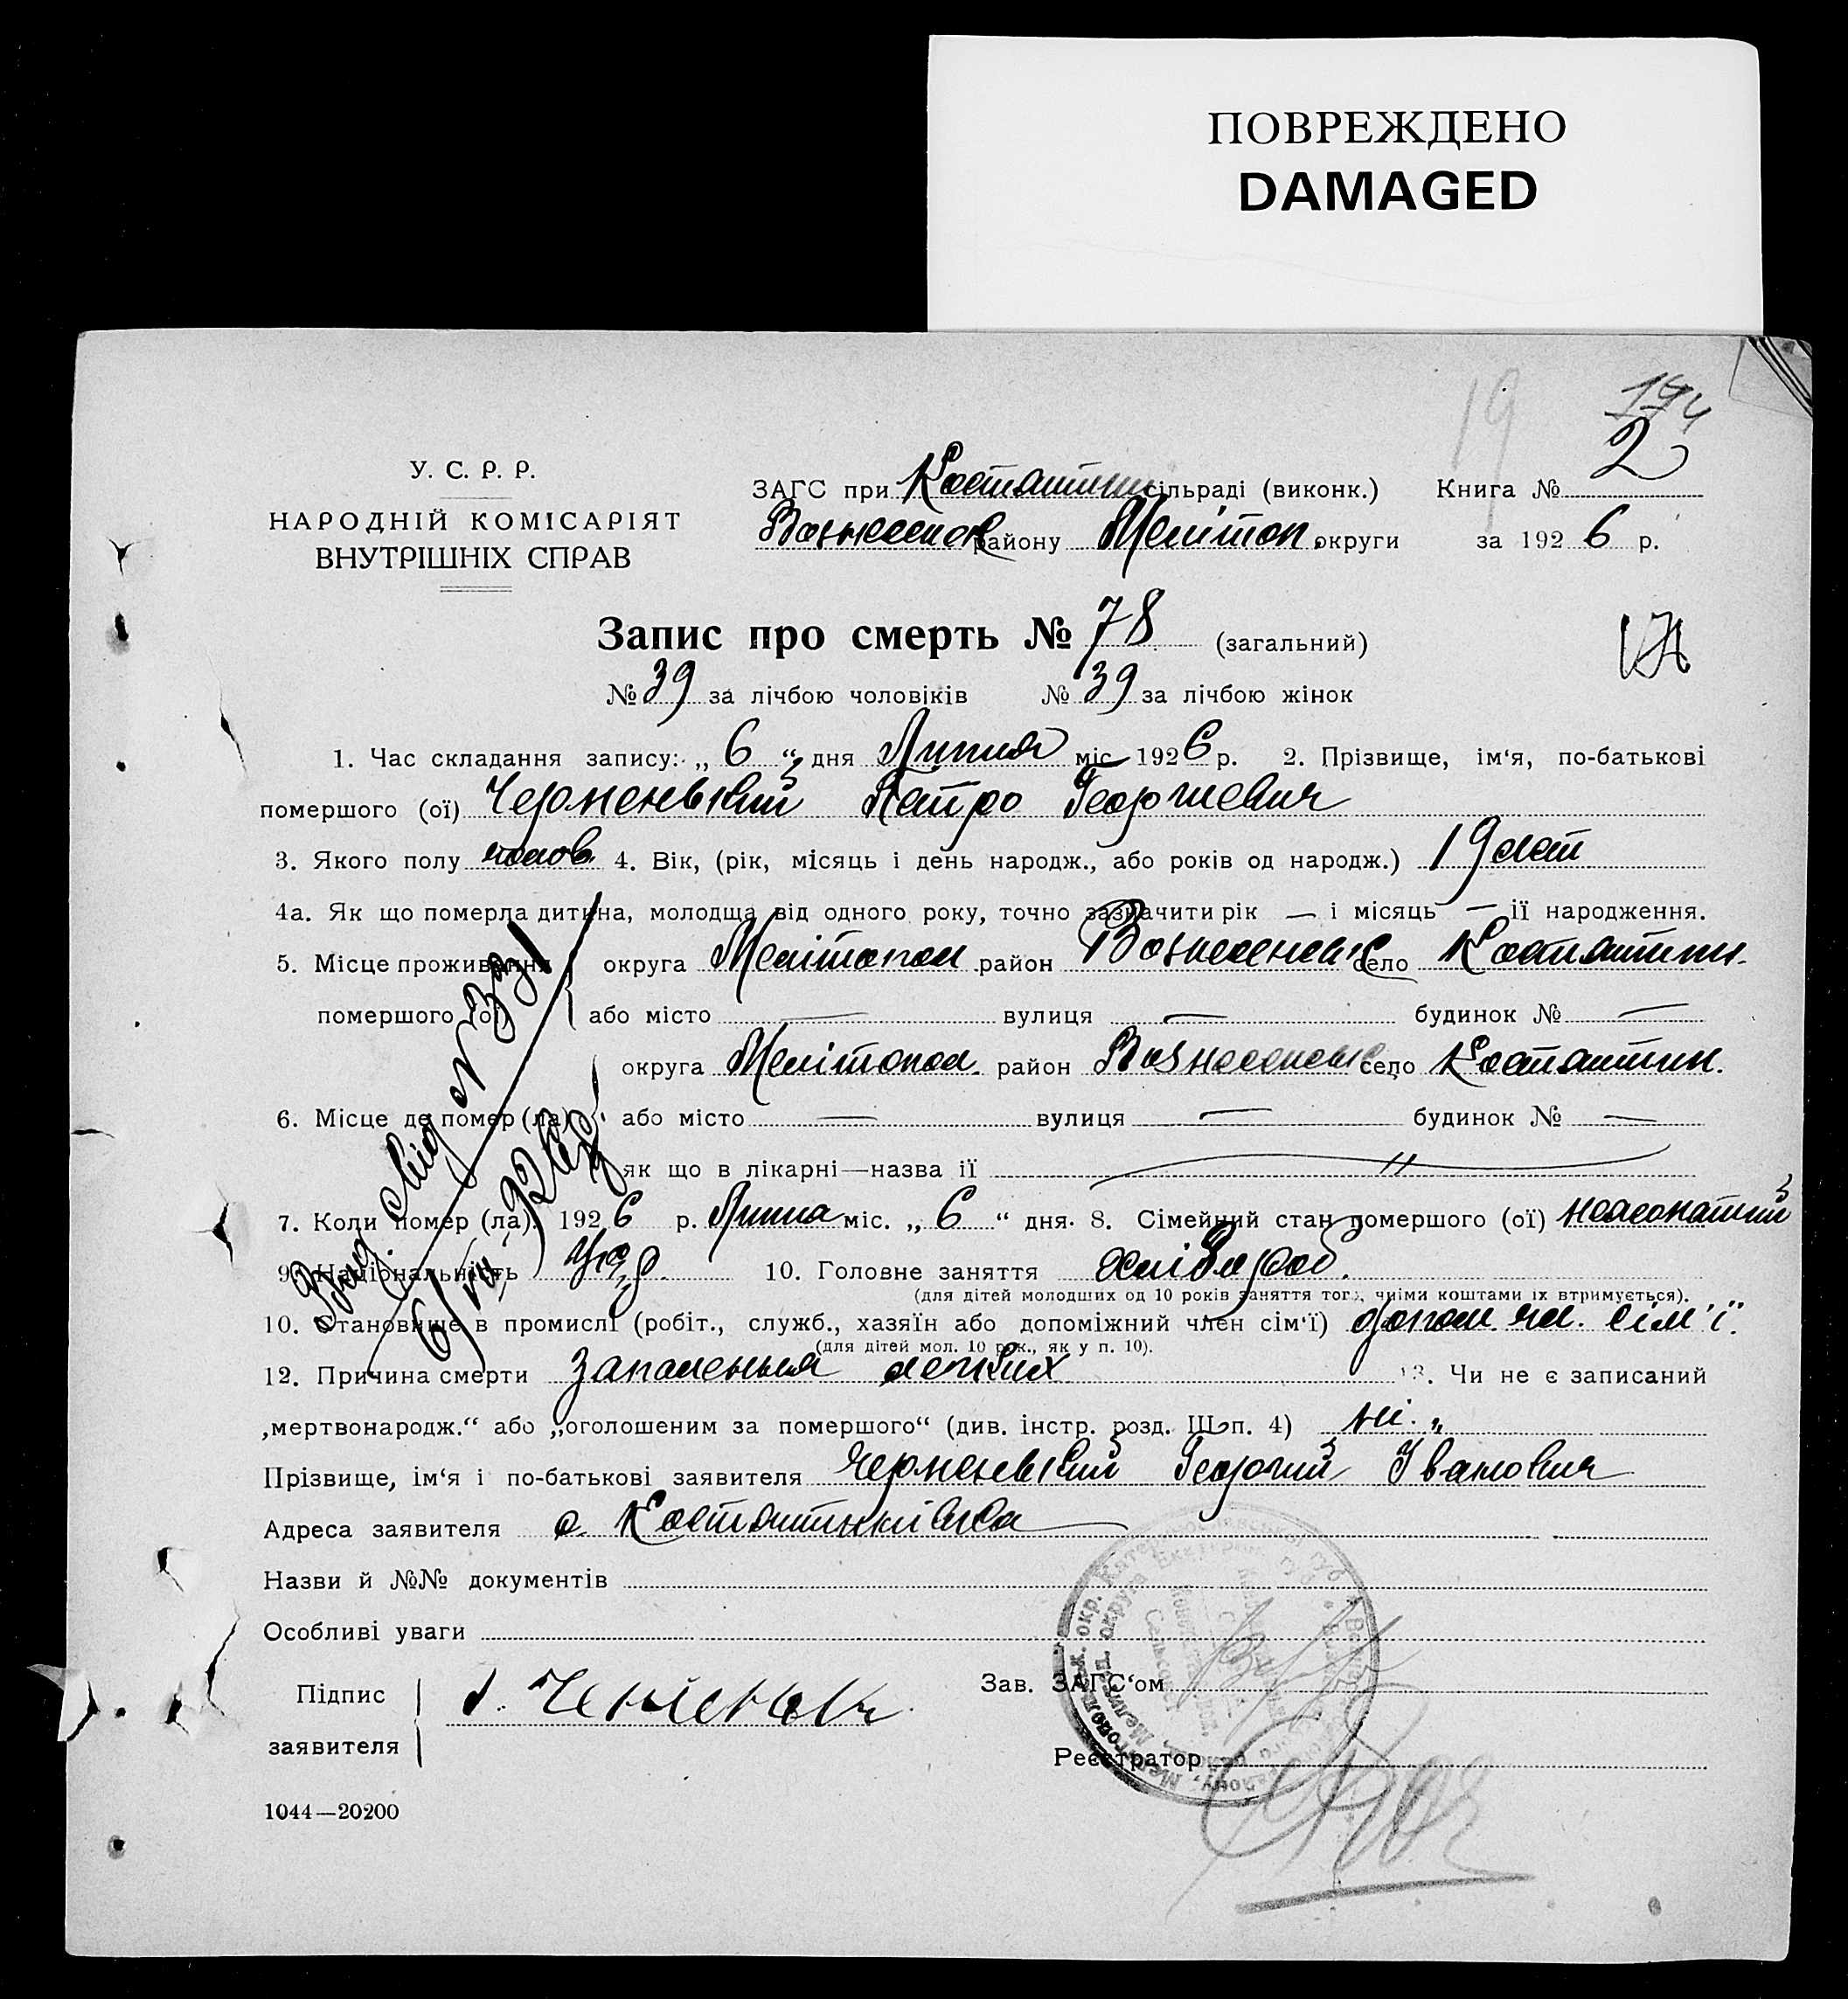 ПОВРЕЖДЕНО
DAMAGED
19
174
У. С. Р. Р.
НАРОДНІЙ КОМІСАРІЯТ
ВНУТРІШНІХ СПРАВ
ЗАГС при Костантин сільраді (виконк.) Книга № 2
Вознесенск району Мелітоп. округи за 1926 р.
Запис про смерть № 78 (загальний)
№ 39 за лічбою чоловіків № 39 за лічбою жінок
1. Час складання запису: „ 6 “ дня Липня міс 1926 р. 2. Прізвище, ім‘я, по-батькові
помершого (ої) Черменський Петро Георгиевич
3. Якого полу чолов. 4. Вік, (рік, місяць і день народж., або років од народж.) 19 лет
4а. Як що померла дитина, молодща від одного року, точно зазначити рік — і місяць — ії народження.
5. Місце проживання округа Мелітопол район Вознесенськ село Костантин.
помершого (ої) або місто — вулиця — будинок № —
округа Мелітопол. район Вознесенськ село Костантин.
6. Місце де помер (ла) або місто — вулиця — будинок № —
як що в лікарні—назва ії
7. Коли помер (ла). 1926 р. Липня міс. „ 6 “ дня. 8. Сімейний стан помершого (ої) нежонатий
9. Національність Укр. 10. Головне заняття хлібороб.
(для дітей молодших од 10 років заняття того, чиіми коштами іх втримується).
10. Становище в промислі (робіт., служб., хазяїн або допоміжний член сім‘ї) допом. чл. сім'ї.
(для дітей мол. 10 рок., як у п. 10).
12. Причина смерти Запаленья легких 13. Чи не є записаний
„мертвонародж.“ або „оголошеним за помершого“ (див. інстр. розд. III п. 4) ні.
Прізвище, ім‘я і по-батькові заявителя Черменьский Георгий Іванович
Адреса заявителя с. Костантинівка
Назви й №№ документів
Особливі уваги
Підпис
заявителя
Зав. ЗАГС‘ом
Реєстратор
1044—20200